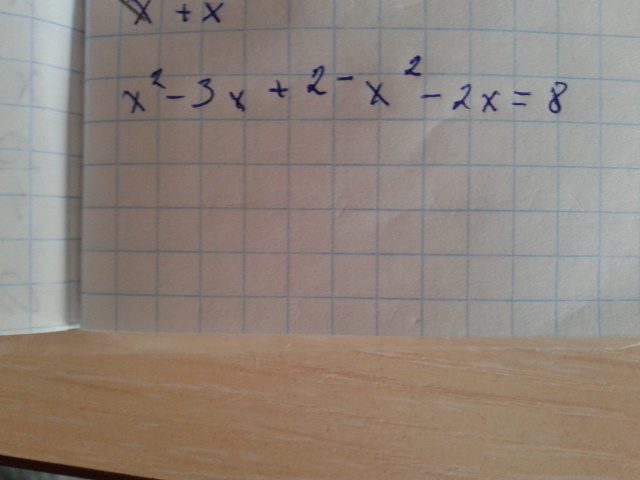 x + x
x² - 3x + 2 - x² - 2x = 8